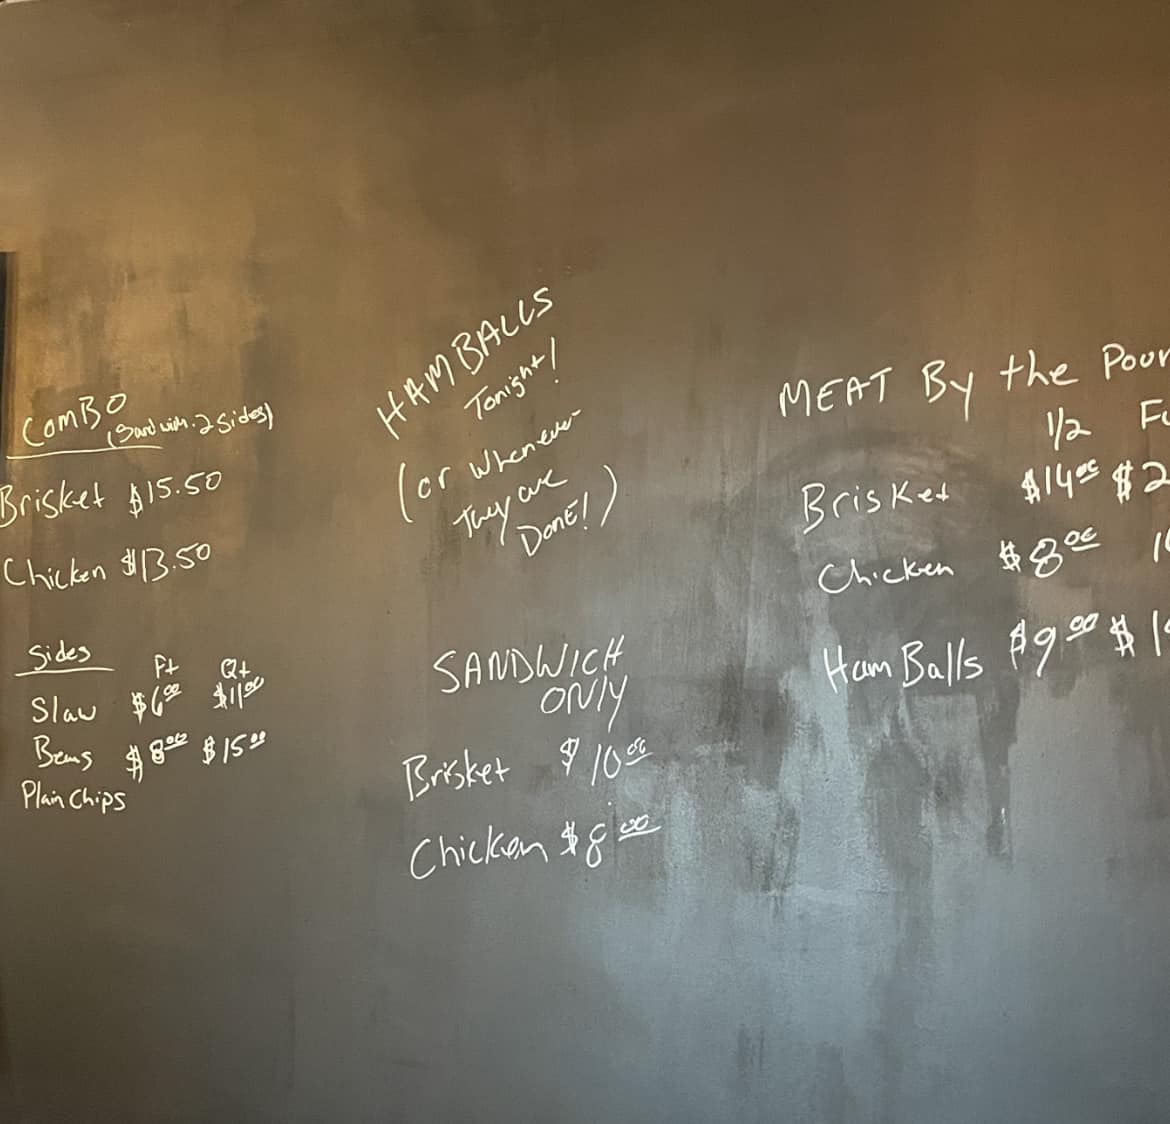 COMBO
(Sandwich. 2 Sides)
Brisket $15.50
Chicken $13.50
Sides
Pt Qt
Slaw $6.00 $11.00
Beans $8.00 $15.00
Plain Chips
HAM BALLS
Tonight!
(or whenever
They are
DONE!)
SANDWICH
ONLY
Brisket $10.00
Chicken $8.00
MEAT By the Poun
1/2 Fu
Brisket $14.00 $2
Chicken $8.00 1
Ham Balls $9.00 $1